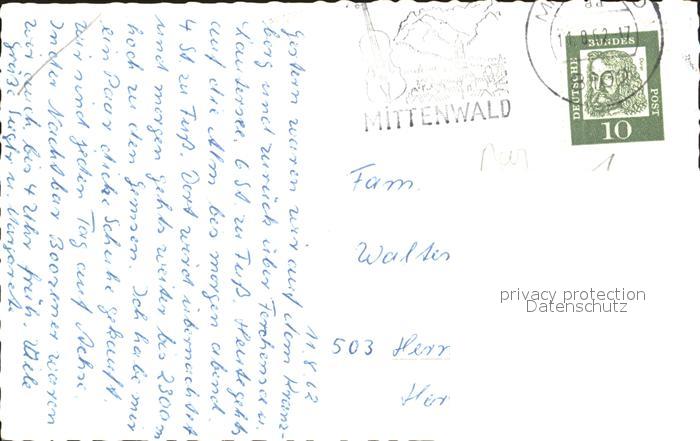 MITTENWALD
11.8.62-17
DEUTSCHE BUNDESPOST
10
11.8.62
Gestern waren wir auf dem Kranz-
berg und zurück über Ferchensee u.
Lautersee. 6 St. zu Fuß. Heute gehts
auf die Alm bis morgen abend.
4 St. zu Fuß. Dort wird übernachtet
und morgen gehts weiter bis 2300 m
hoch zu den Gemsen. Ich habe mir
ein Paar dicke Schuhe gekauft.
Wir sind jeden Tag auf Achse.
In der Nachtbar waren
wir auch bis 4 Uhr früh. Viele
Grüße
Fam.
Walter
503 Herr
Her
privacy protection
Datenschutz